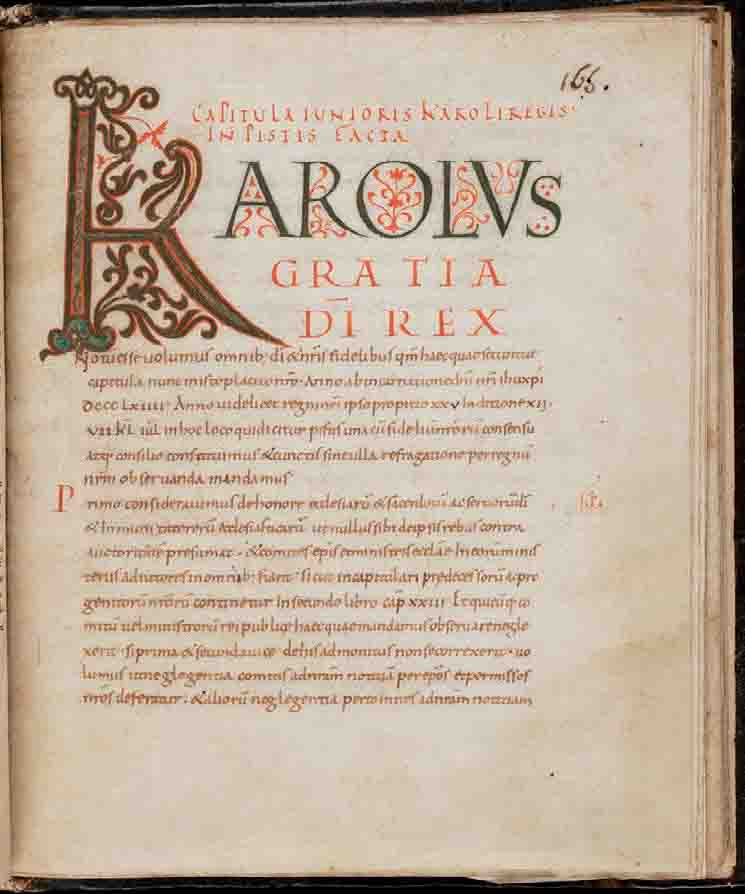 166.
CAPITULA IUNIORIS KAROLI REGIS·
IN PISTIS FACTA
KAROLVS
GRATIA
DI REX
Noti esse volumus omnib; di & nris fidelibus qm haec quae secuntur
capitula nunc in isto placito nro · Anno ab incarnatione dni nri ihu xpi
DCCCLXIIII· Anno videlicet regni nri ipso propitio xxv Indictione xii·
vii kl iul in hoc loco qui dicitur pistis una cu fideliu nroru consensu
atq; consilio constituimus & cunctis sine ulla refragatione per regnu
nrm observanda mandamus
Primo consideravimus de honore ecclesiaru & sacerdotu ac servoru di
& Immunitate reru ecclesiasticaru ut nullus sibi de ipsis rebus contra
auctoritate presumat · & comites epis & ministris ecclae In eoru minis
teriis adiutores in omnib; fiant · sicut in capitulari predecessoru ac pro
genitoru nroru continetur In secundo libro cap xxiii· Et quicuq; co
mitu vel ministroru rei publice haec quae mandamus observare negle
xerit · si prima & secunda vice de his admonitus non se correxerit · vo
lumus ut neglegentia comitis ad nram notitia per epos & per missos
nros deferatur · & alioru neglegentia per comites ad nram notitiam